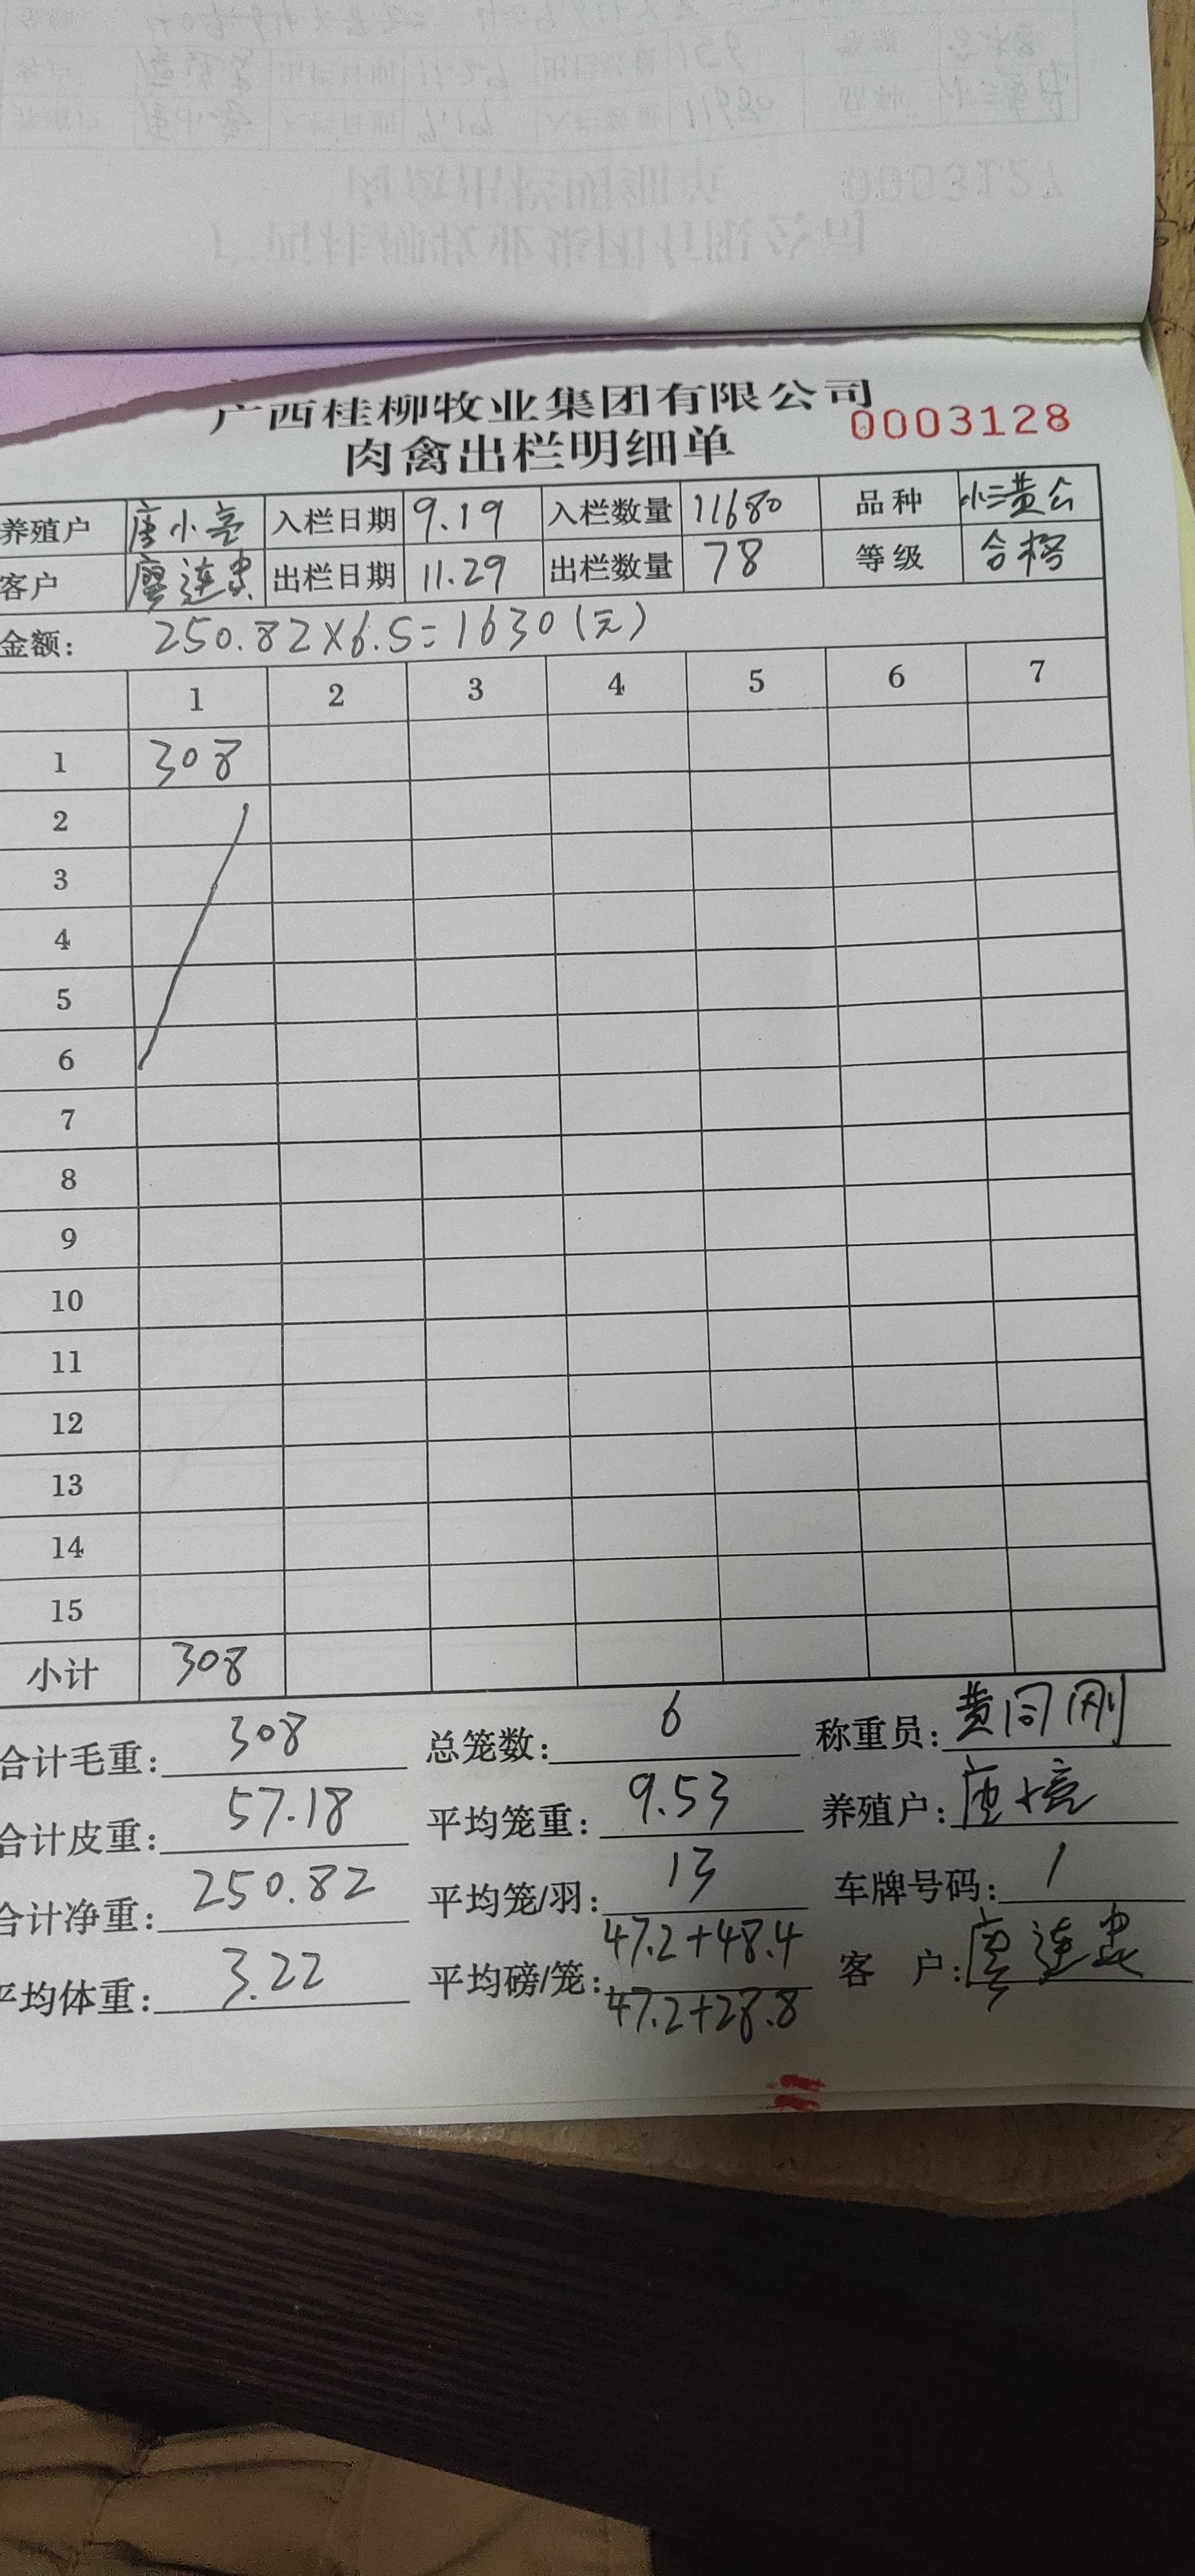 广西桂柳牧业集团有限公司
肉禽出栏明细单
0003128
养殖户 唐小亮 入栏日期 9.19 入栏数量 11680 品种 小三黄公
客户 廖连忠 出栏日期 11.29 出栏数量 78 等级 合格
金额: 250.82×6.5=1630(元)
1 2 3 4 5 6 7
1 308
2
3
4
5
6
7
8
9
10
11
12
13
14
15
小计 308
合计毛重: 308 总笼数: 6 称重员: 黄同刚
合计皮重: 57.18 平均笼重: 9.53 养殖户:
合计净重: 250.82 平均笼/羽: 13 车牌号码: /
平均体重: 3.22 平均磅/笼: 47.2+48.4 客 户: 廖连忠
47.2+28.8